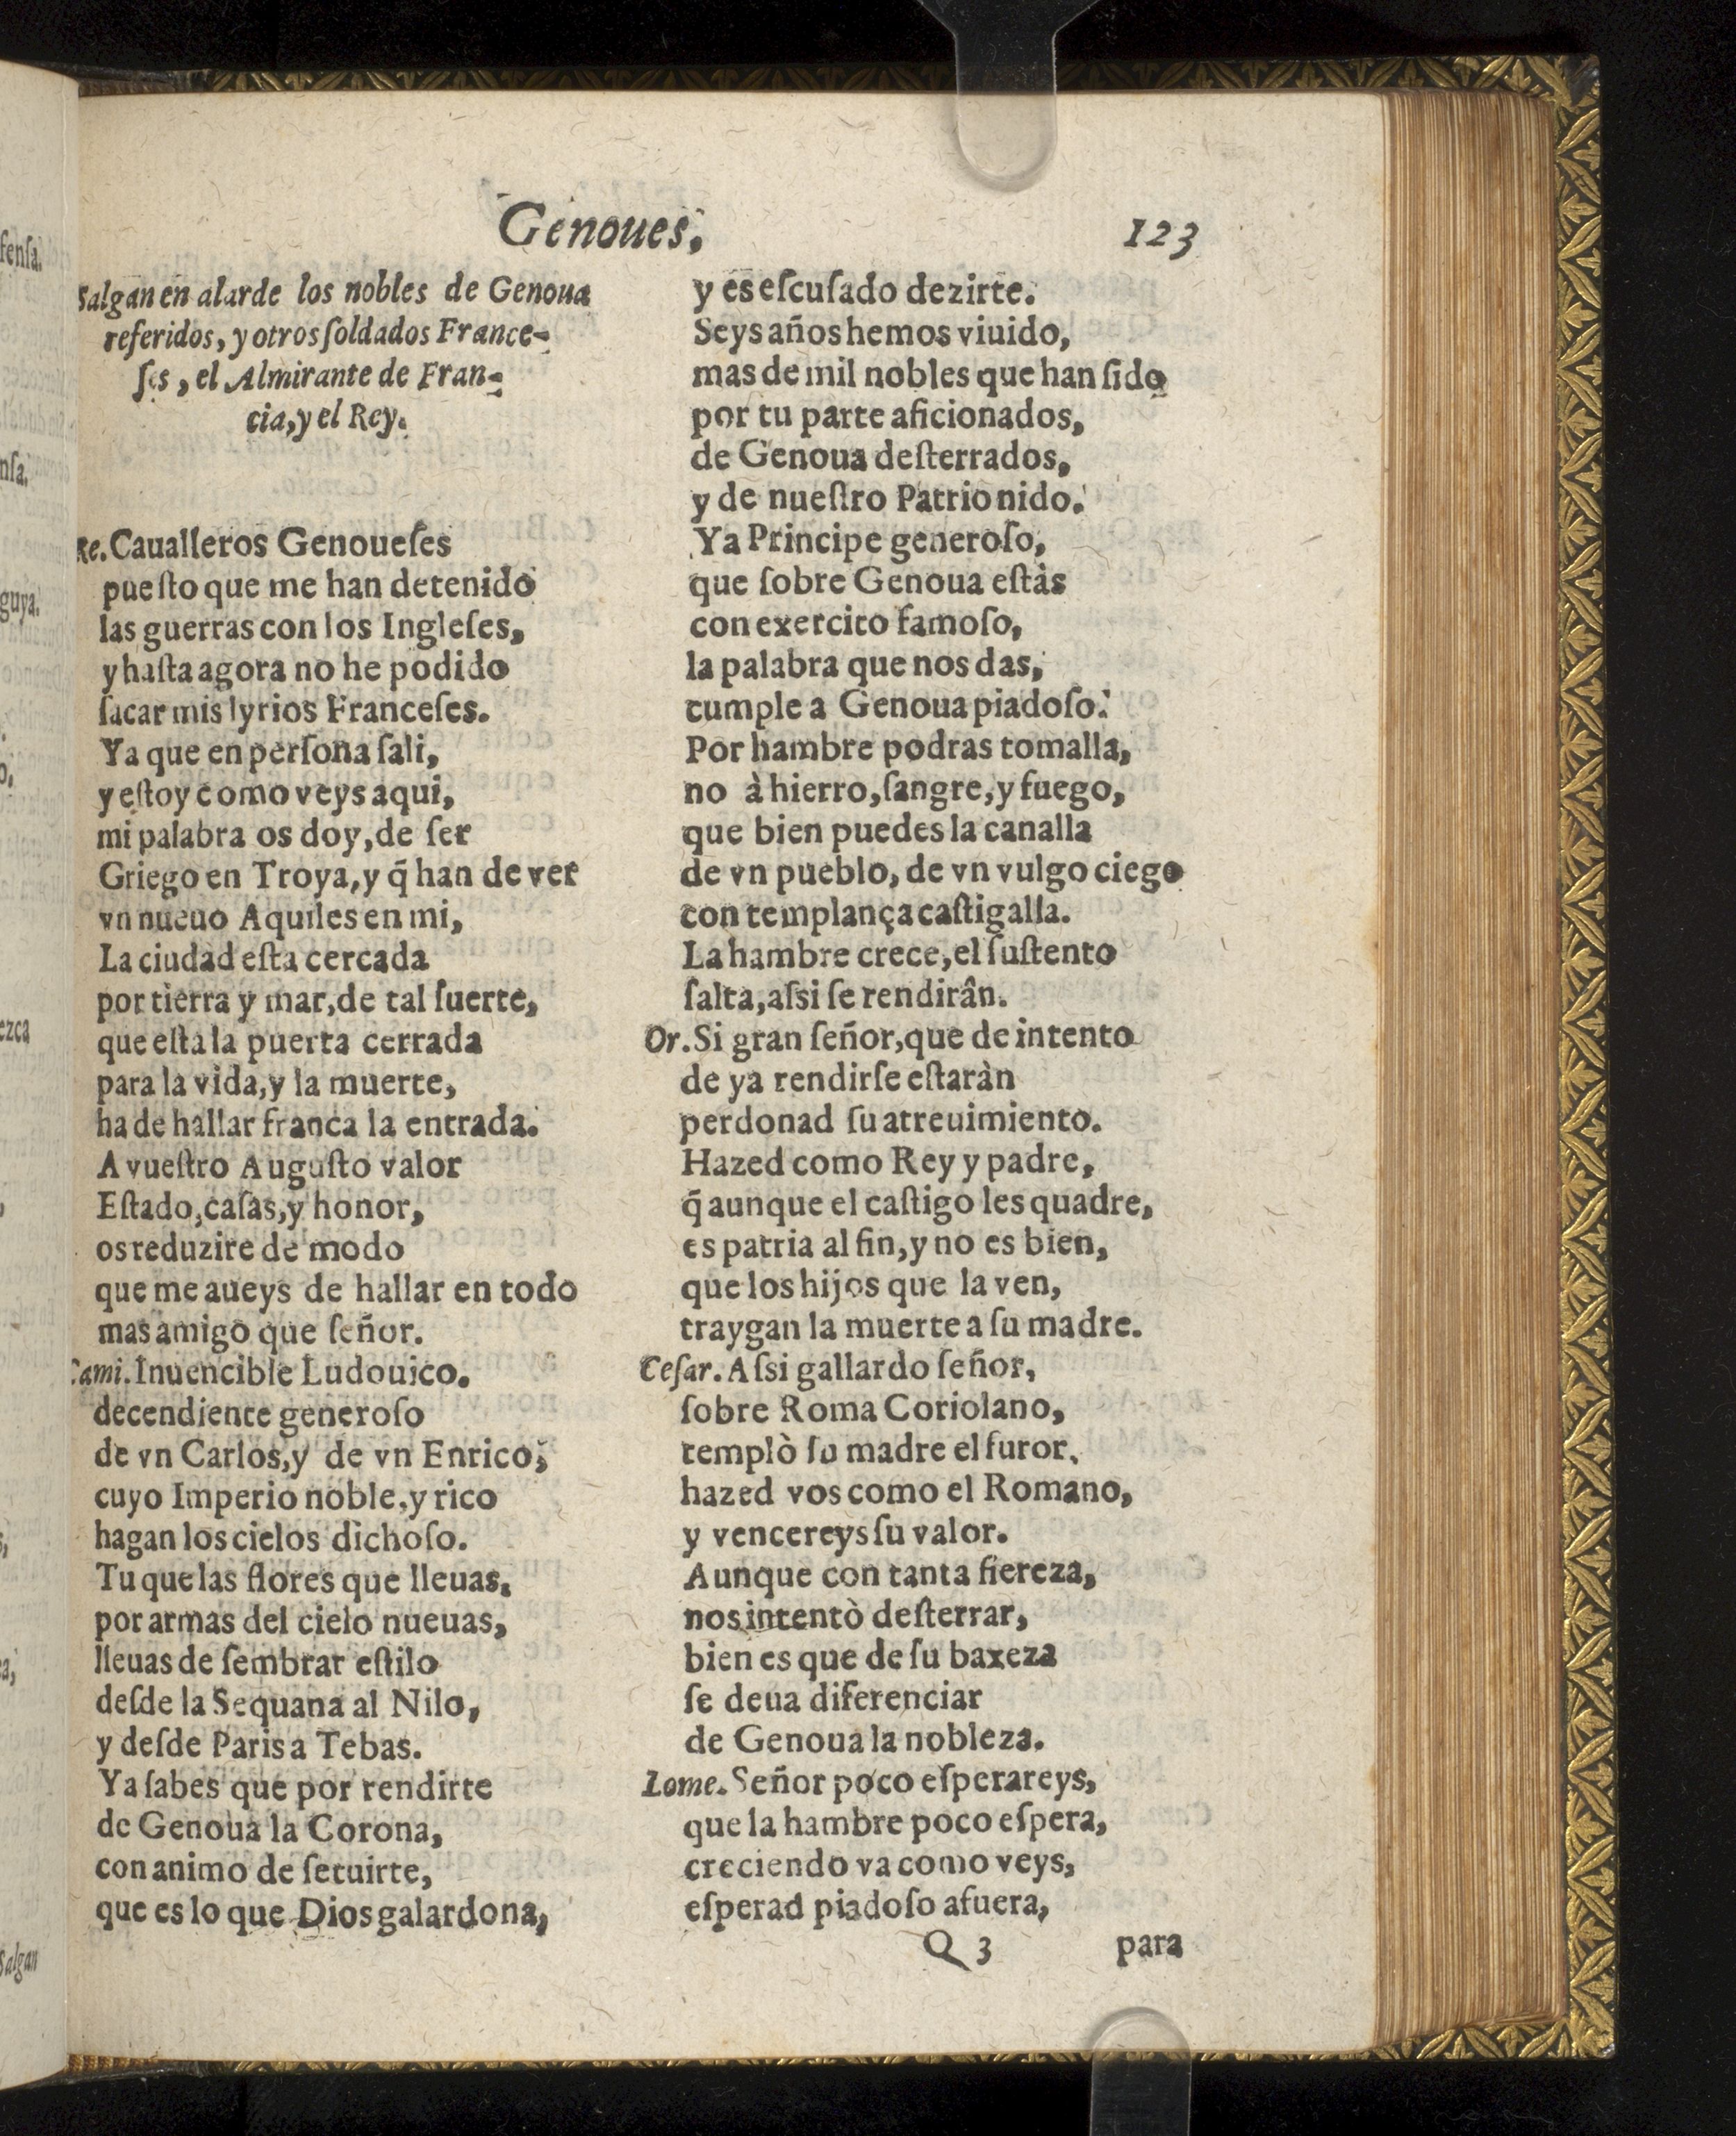 Genoues,
123
Salgan en alarde los nobles de Genoua
referidos, y otros ſoldados France-
ſes, el Almirante de Fran-
cia, y el Rey.
Re. Caualleros Genoueſes
pueſto que me han detenido
las guerras con los Ingleſes,
y haſta agora no he podido
ſacar mis lyrios Franceſes.
Ya que en perſona ſali,
y eſtoy como veys aqui,
mi palabra os doy, de ſer
Griego en Troya, y q̃ han de ver
vn nueuo Aquiles en mi,
La ciudad eſta cercada
por tierra y mar, de tal ſuerte,
que eſtà la puerta cerrada
para la vida, y la muerte,
ha de hallar franca la entrada.
A vueſtro Auguſto valor
Eſtado, caſas, y honor,
os reduzire de modo
que me aueys de hallar en todo
mas amigo que ſeñor.
Cami. Inuencible Ludouico.
decendiente generoſo
de vn Carlos, y de vn Enrico,
cuyo Imperio noble, y rico
hagan los cielos dichoſo.
Tu que las flores que lleuas,
por armas del cielo nueuas,
lleuas de ſembrar eſtilo
deſde la Sequana al Nilo,
y deſde Paris a Tebas.
Ya ſabes que por rendirte
de Genoua la Corona,
con animo de ſeruirte,
que es lo que Dios galardona,
y es eſcuſado dezirte.
Seys años hemos viuido,
mas de mil nobles que han ſido
por tu parte aficionados,
de Genoua deſterrados,
y de nueſtro Patrio nido.
Ya Principe generoſo,
que ſobre Genoua eſtàs
con exercito famoſo,
la palabra que nos das,
cumple a Genoua piadoſo.
Por hambre podras tomalla,
no à hierro, ſangre, y fuego,
que bien puedes la canalla
de vn pueblo, de vn vulgo ciego
con templança caſtigalla.
La hambre crece, el ſuſtento
falta, aſsi ſe rendirân.
Or. Si gran ſeñor, que de intento
de ya rendirſe eſtaràn
perdonad ſu atreuimiento.
Hazed como Rey y padre,
q̃ aunque el caſtigo les quadre,
es patria al fin, y no es bien,
que los hijos que la ven,
traygan la muerte a ſu madre.
Ceſar. Aſsi gallardo ſeñor,
ſobre Roma Coriolano,
templò ſu madre el furor,
hazed vos como el Romano,
y vencereys ſu valor.
Aunque con tanta fiereza,
nos intentò deſterrar,
bien es que de ſu baxeza
ſe deua diferenciar
de Genoua la nobleza.
Lome. Señor poco eſperareys,
que la hambre poco eſpera,
creciendo va como veys,
eſperad piadoſo afuera,
Q 3
para